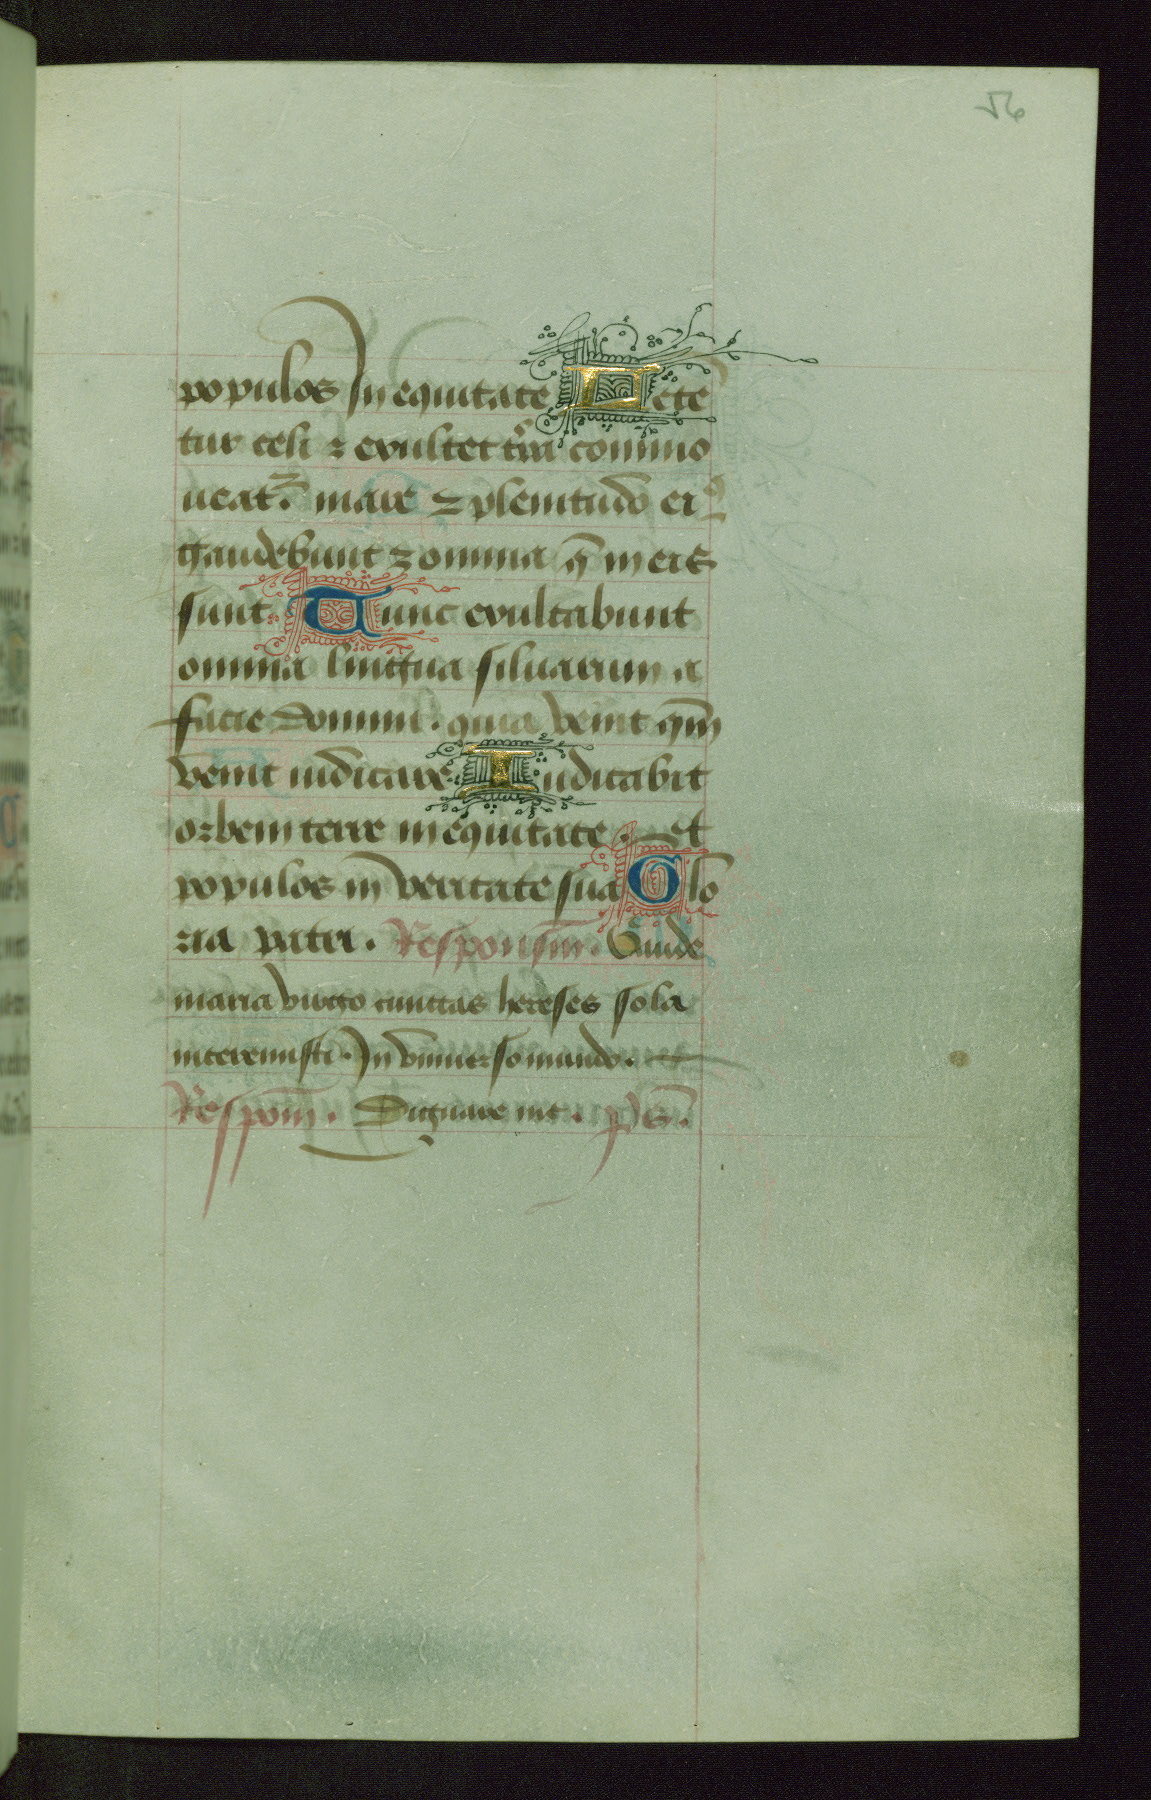 56
populos In equitate Lete
tur celi ⁊ exultet t̄ra commo
ueat᷑. mare ⁊ plenitudo ei⁹
gaudebunt ⁊ omnia q̄ in eis
sunt. Tunc exultabunt
omnia lingua siluarum a
facie domini. quia venit qm̄
venit iudicare Iudicabit
orbem terre in equitate. et
populos in veritate sua Glo
ria patri. Responsum. Gaude
maria virgo cunctas hereses sola
interemisti. In vniuerso mundo.
Respom̄. Dignare me. ps̄.